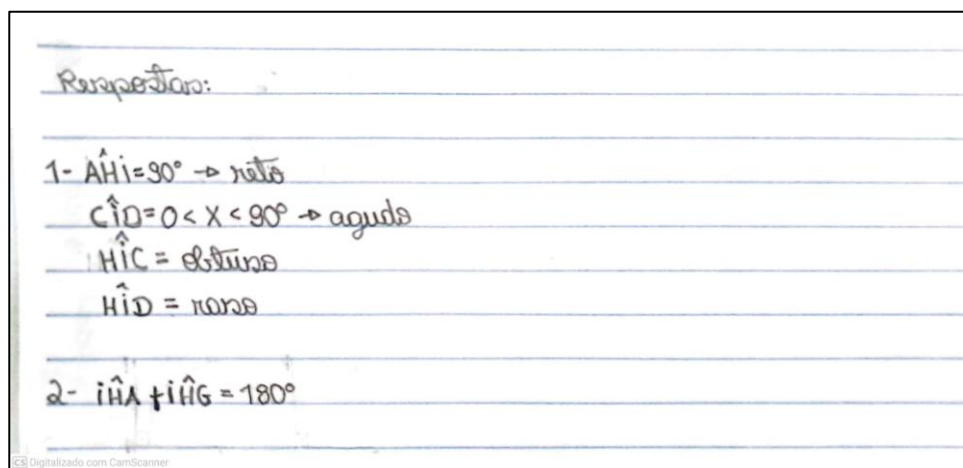 Respostas:
1- AĤi=90° → reto
CÎD=0< X < 90° → agudo
HÎC = obtuso
HÎD = raso
2- iĤA + iĤG = 180°
CS Digitalizado com CamScanner